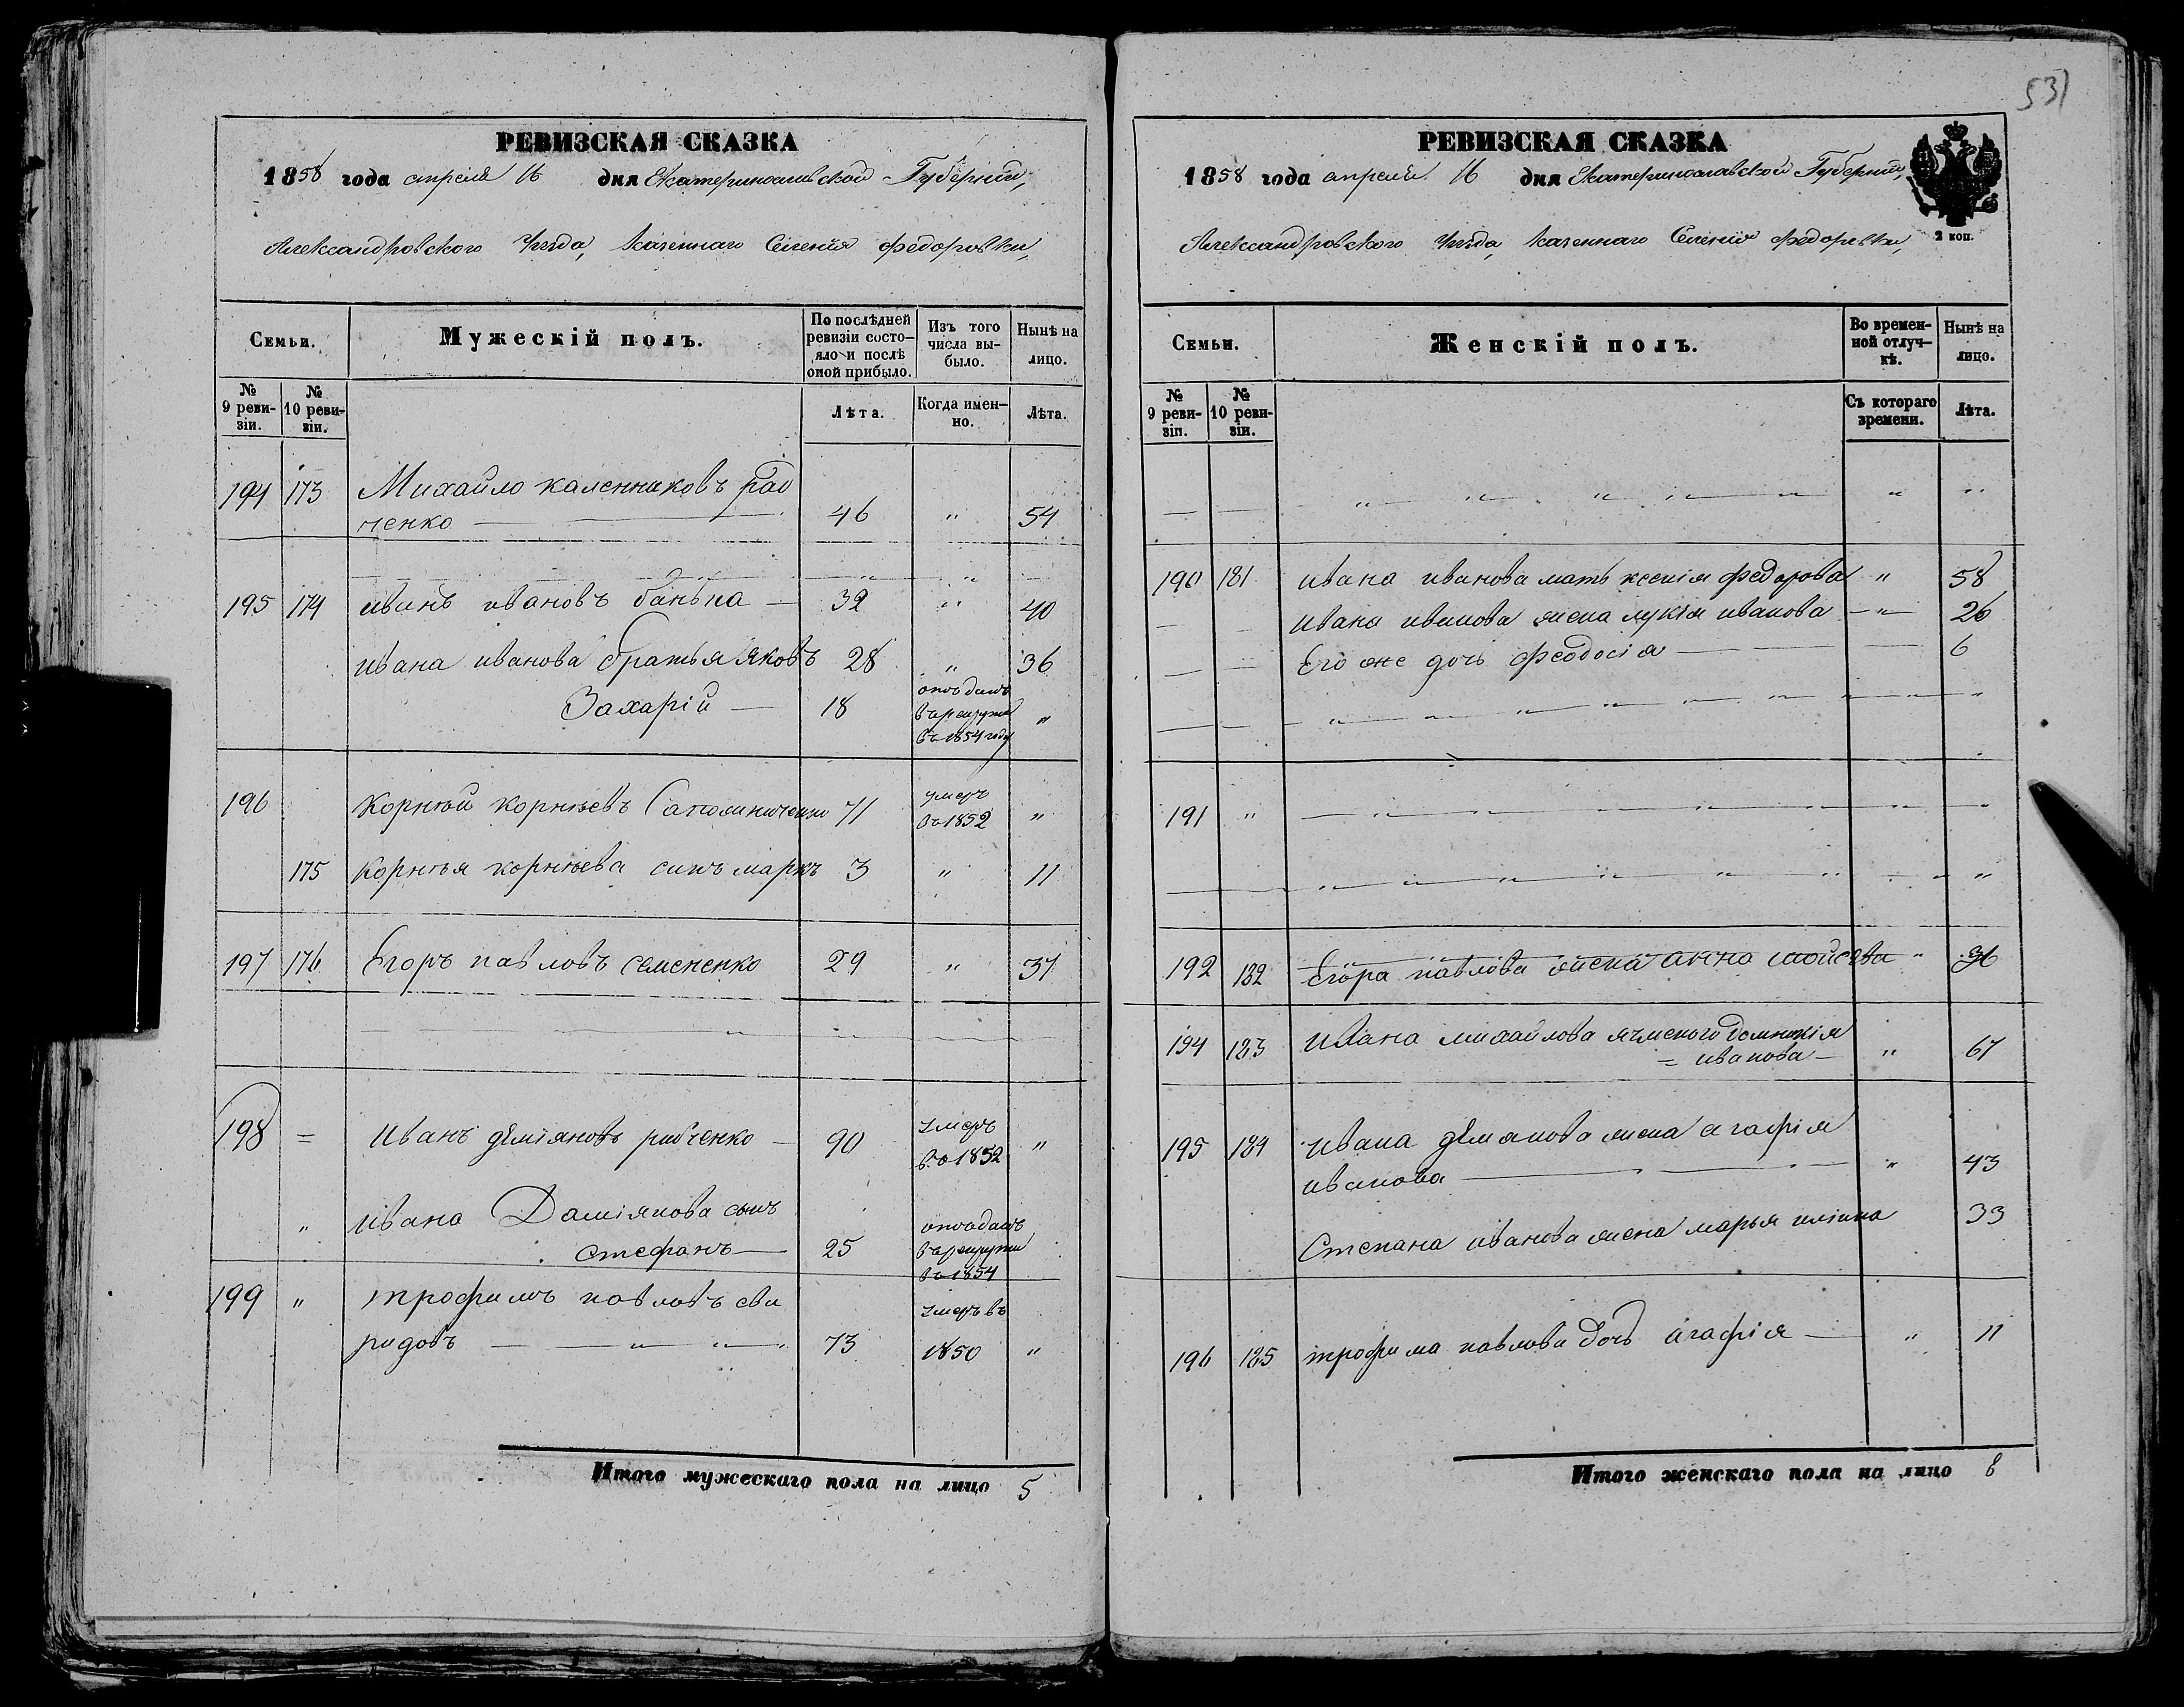 531
РЕВИЗСКАЯ СКАЗКА
1858 года апреля 16 дня Екатеринославской Губерніи,
Александровского Уезда, казеннаго Селенія Федоровки,
Семьи.
Мужескій полъ.
По послѣдней ревизіи состояло и послѣ оной прибыло.
Изъ того числа выбыло.
Нынѣ на лицо.
№ 9 ревизіи.
№ 10 ревизіи.
Лѣта.
Когда именно.
Лѣта.
194 173 Михайло каленниковъ
ченко 46 " 54
195 174 иванъ ивановъ банька 32 " 40
ивана иванова братья яковъ 28 " 36
Захарій 18 отъданъ въ рекруты въ 1854 году "
196 корнѣй корнѣевъ 71 умеръ въ 1852 "
175 корнѣя корнѣева синъ маркъ 3 " 11
197 176 Егоръ павловъ семененко 29 " 37
198 = иванъ деміяновъ рибченко 90 умеръ въ 1852 "
" ивана Даміянова сынъ
стефанъ 25 отъданъ въ рекруты въ 1854
199 " трофимъ павловъ сви
ридовъ 73 умеръ въ 1850 "
Итого мужескаго пола на лицо 5
РЕВИЗСКАЯ СКАЗКА
1858 года апреля 16 дня Екатеринославской Губерніи,
Александровского Уезда, казеннаго Селенія Федоровки,
2 коп.
Семьи.
Женскій полъ.
Во временной отлучкѣ.
Нынѣ на лицо.
№ 9 ревизіи.
№ 10 ревизіи.
Съ котораго времени.
Лѣта.
190 181 ивана иванова мать ксенія федорова " 58
ивана иванова жена лукія иванова " 26
Его же дочь феодосія 6
191 "
192 182 Егора павлова жена анна моисѣева " 36
194 183 ивана михайлова
= иванова " 67
195 184 ивана демянова жена агафія
иванова " 43
Степана иванова жена марья 33
196 185 трофима павлова дочь агафія " 11
Итого женскаго пола на лицо 8